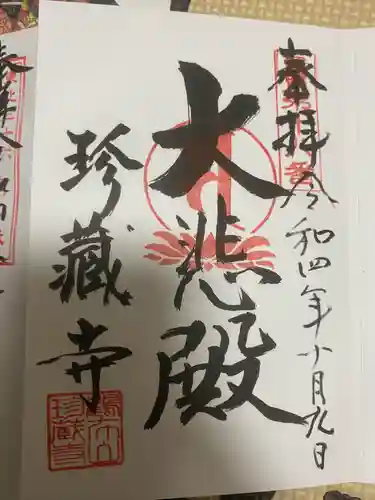 奉拝
令和四年十月九日
大悲殿
珍蔵寺